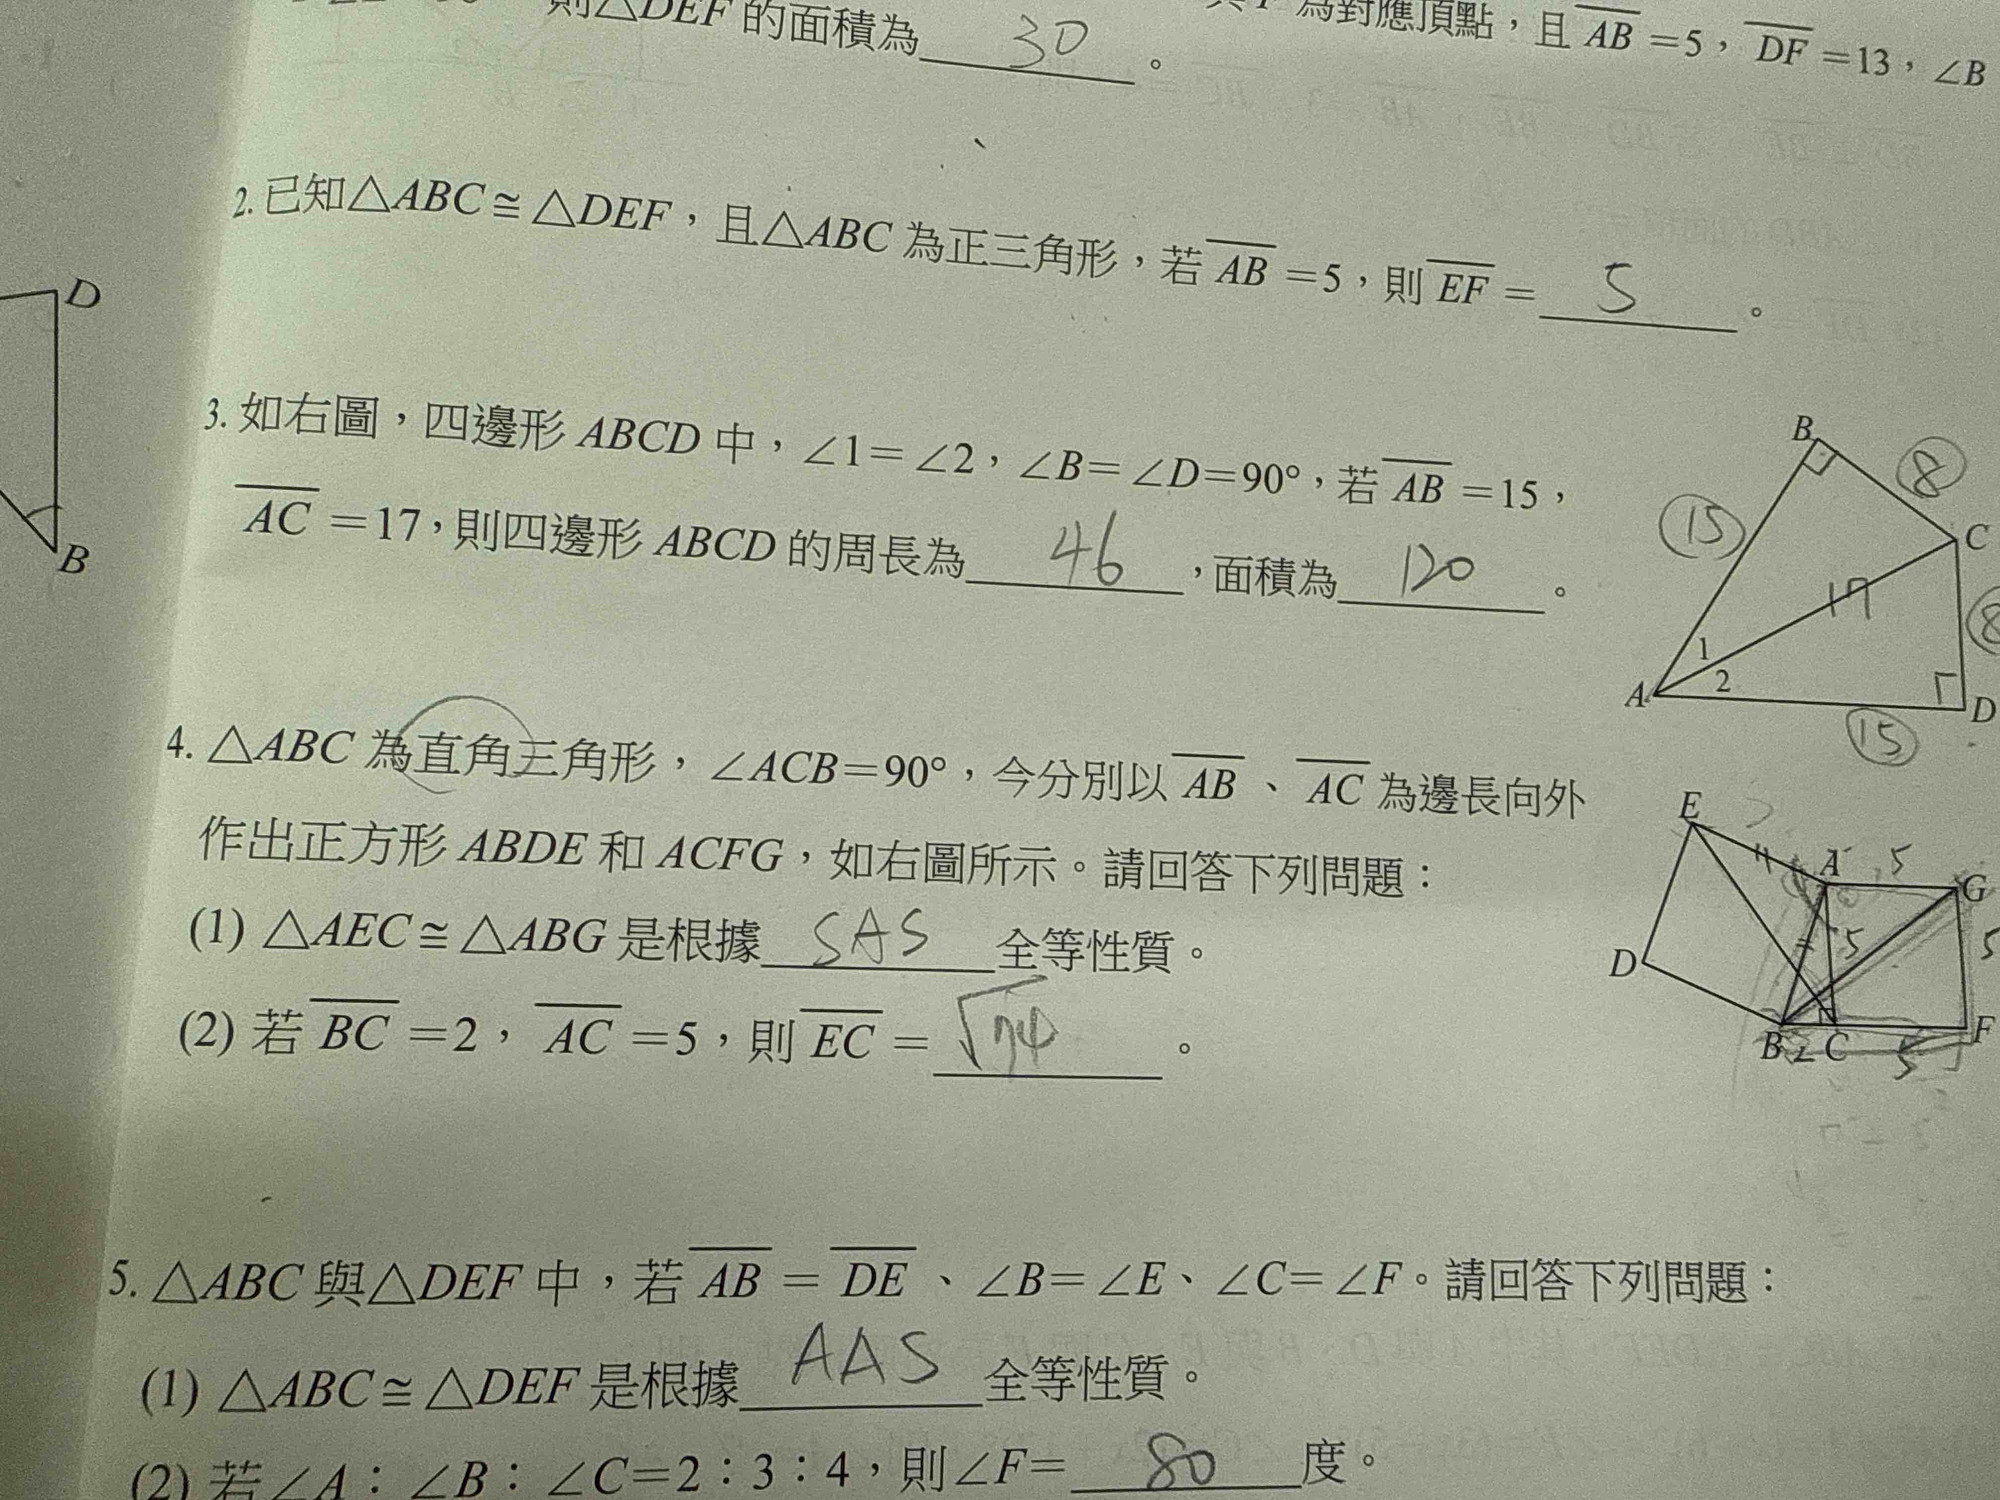 則△DEF 的面積為 30 。
為對應頂點，且 AB =5，DF =13，∠B
2. 已知△ABC≅△DEF，且△ABC 為正三角形，若 AB =5，則 EF = 5 。
3. 如右圖，四邊形 ABCD 中，∠1=∠2，∠B=∠D=90°，若 AB =15，
AC =17，則四邊形 ABCD 的周長為 46 ，面積為 120 。
B 8
15 C
17 8
1
2
A D
15
D
B
4. △ABC 為直角三角形，∠ACB=90°，今分別以 AB 、 AC 為邊長向外
作出正方形 ABDE 和 ACFG，如右圖所示。請回答下列問題：
(1) △AEC≅△ABG 是根據 SAS 全等性質。
(2) 若 BC =2， AC =5，則 EC = √74 。
E
A 5
G
5 5
D
B 2 C 5 F
5. △ABC 與△DEF 中，若 AB = DE 、∠B=∠E、∠C=∠F。請回答下列問題：
(1) △ABC≅△DEF 是根據 AAS 全等性質。
(2) 若∠A：∠B：∠C=2：3：4，則∠F= 80 度。